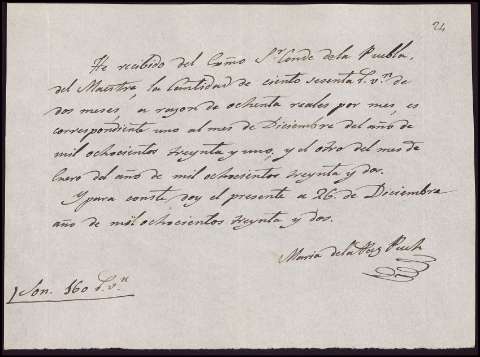 24
He recibido del Exmo Sr Conde de la Puebla,
del Maestre la Cantidad de ciento sesenta r.s v.n de
dos meses, a razon de ochenta reales por mes, es
correspondiente uno al mes de Diciembre del año de
mil ochocientos treynta y uno, y el otro del mes de
Enero del año de mil ochocientos treynta y dos.
Y para conste doy el presente a 26 de Diciembre
año de mil ochocientos treynta y dos.
Maria de la
Son 160 r.s v.n